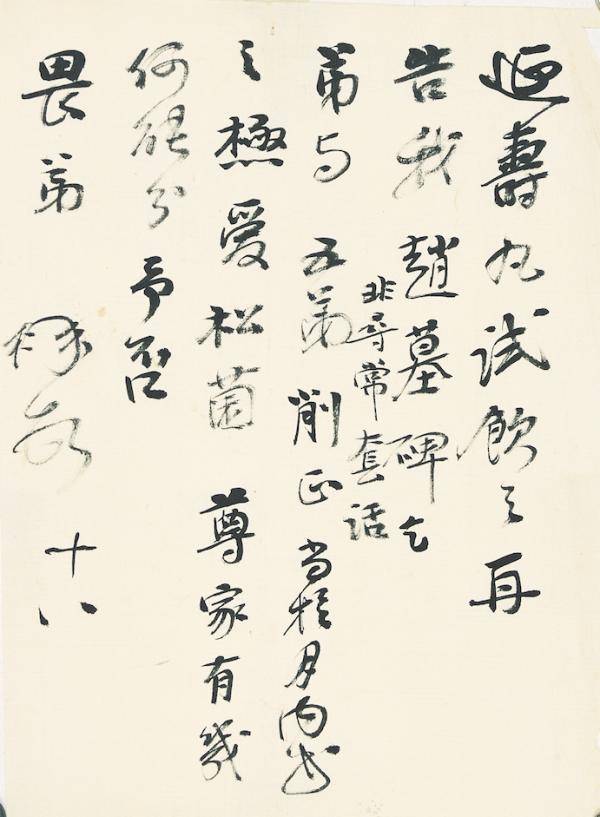 延壽丸試飲之再
告我趙墓碑乞
非尋常套話
弟与五弟削正当於月内成
之極愛松菌尊家有幾
何能分予否
畏弟 十八